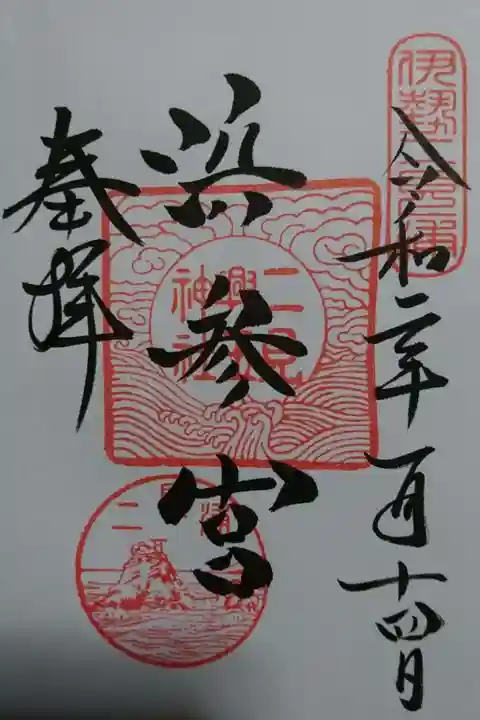 伊勢二見浦
令和二年一月十四日
浜参宮
二見興玉神社
奉拝
二見浦